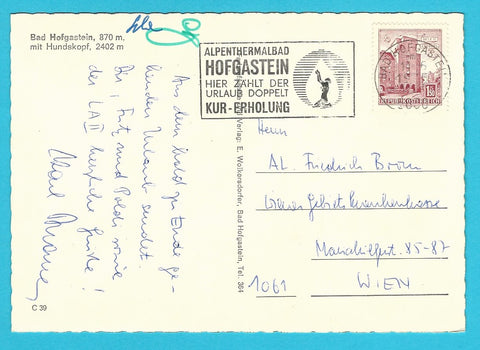 Bad Hofgastein, 870 m,
mit Hundskopf, 2402 m
ALPENTHERMALBAD
HOFGASTEIN
HIER ZÄHLT DER
URLAUB DOPPELT
KUR-ERHOLUNG
BAD HOFGASTEIN
REPUBLIK ÖSTERREICH
Aus dem bald zu Ende ge-
henden Urlaub sendet
Dir, Fritz und Poldi sowie
der LA II herzliche Grüße!
Verlag: E. Wolkersdorfer, Bad Hofgastein, Tel. 364
Herrn
AL. Friedrich
Wiener Gebietskrankenkasse
Mariahilferstr. 85-87
1061 WIEN
C 39